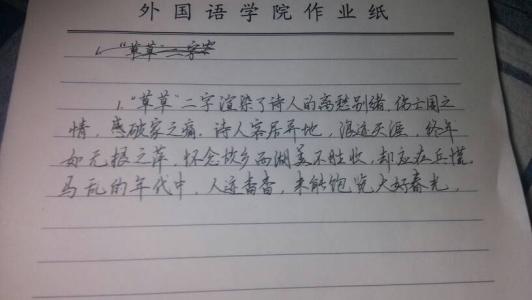 外国语学院作业纸
1. "草草"二字
1. "草草"二字渲染了诗人的离愁别绪、伤亡国之
情，感破家之痛。诗人客居异地，浪迹天涯，终年
如无根之萍，怀念故乡西湖美不胜收，却应在兵慌
马乱的年代中，人迹杳杳，未能饱览大好春光。